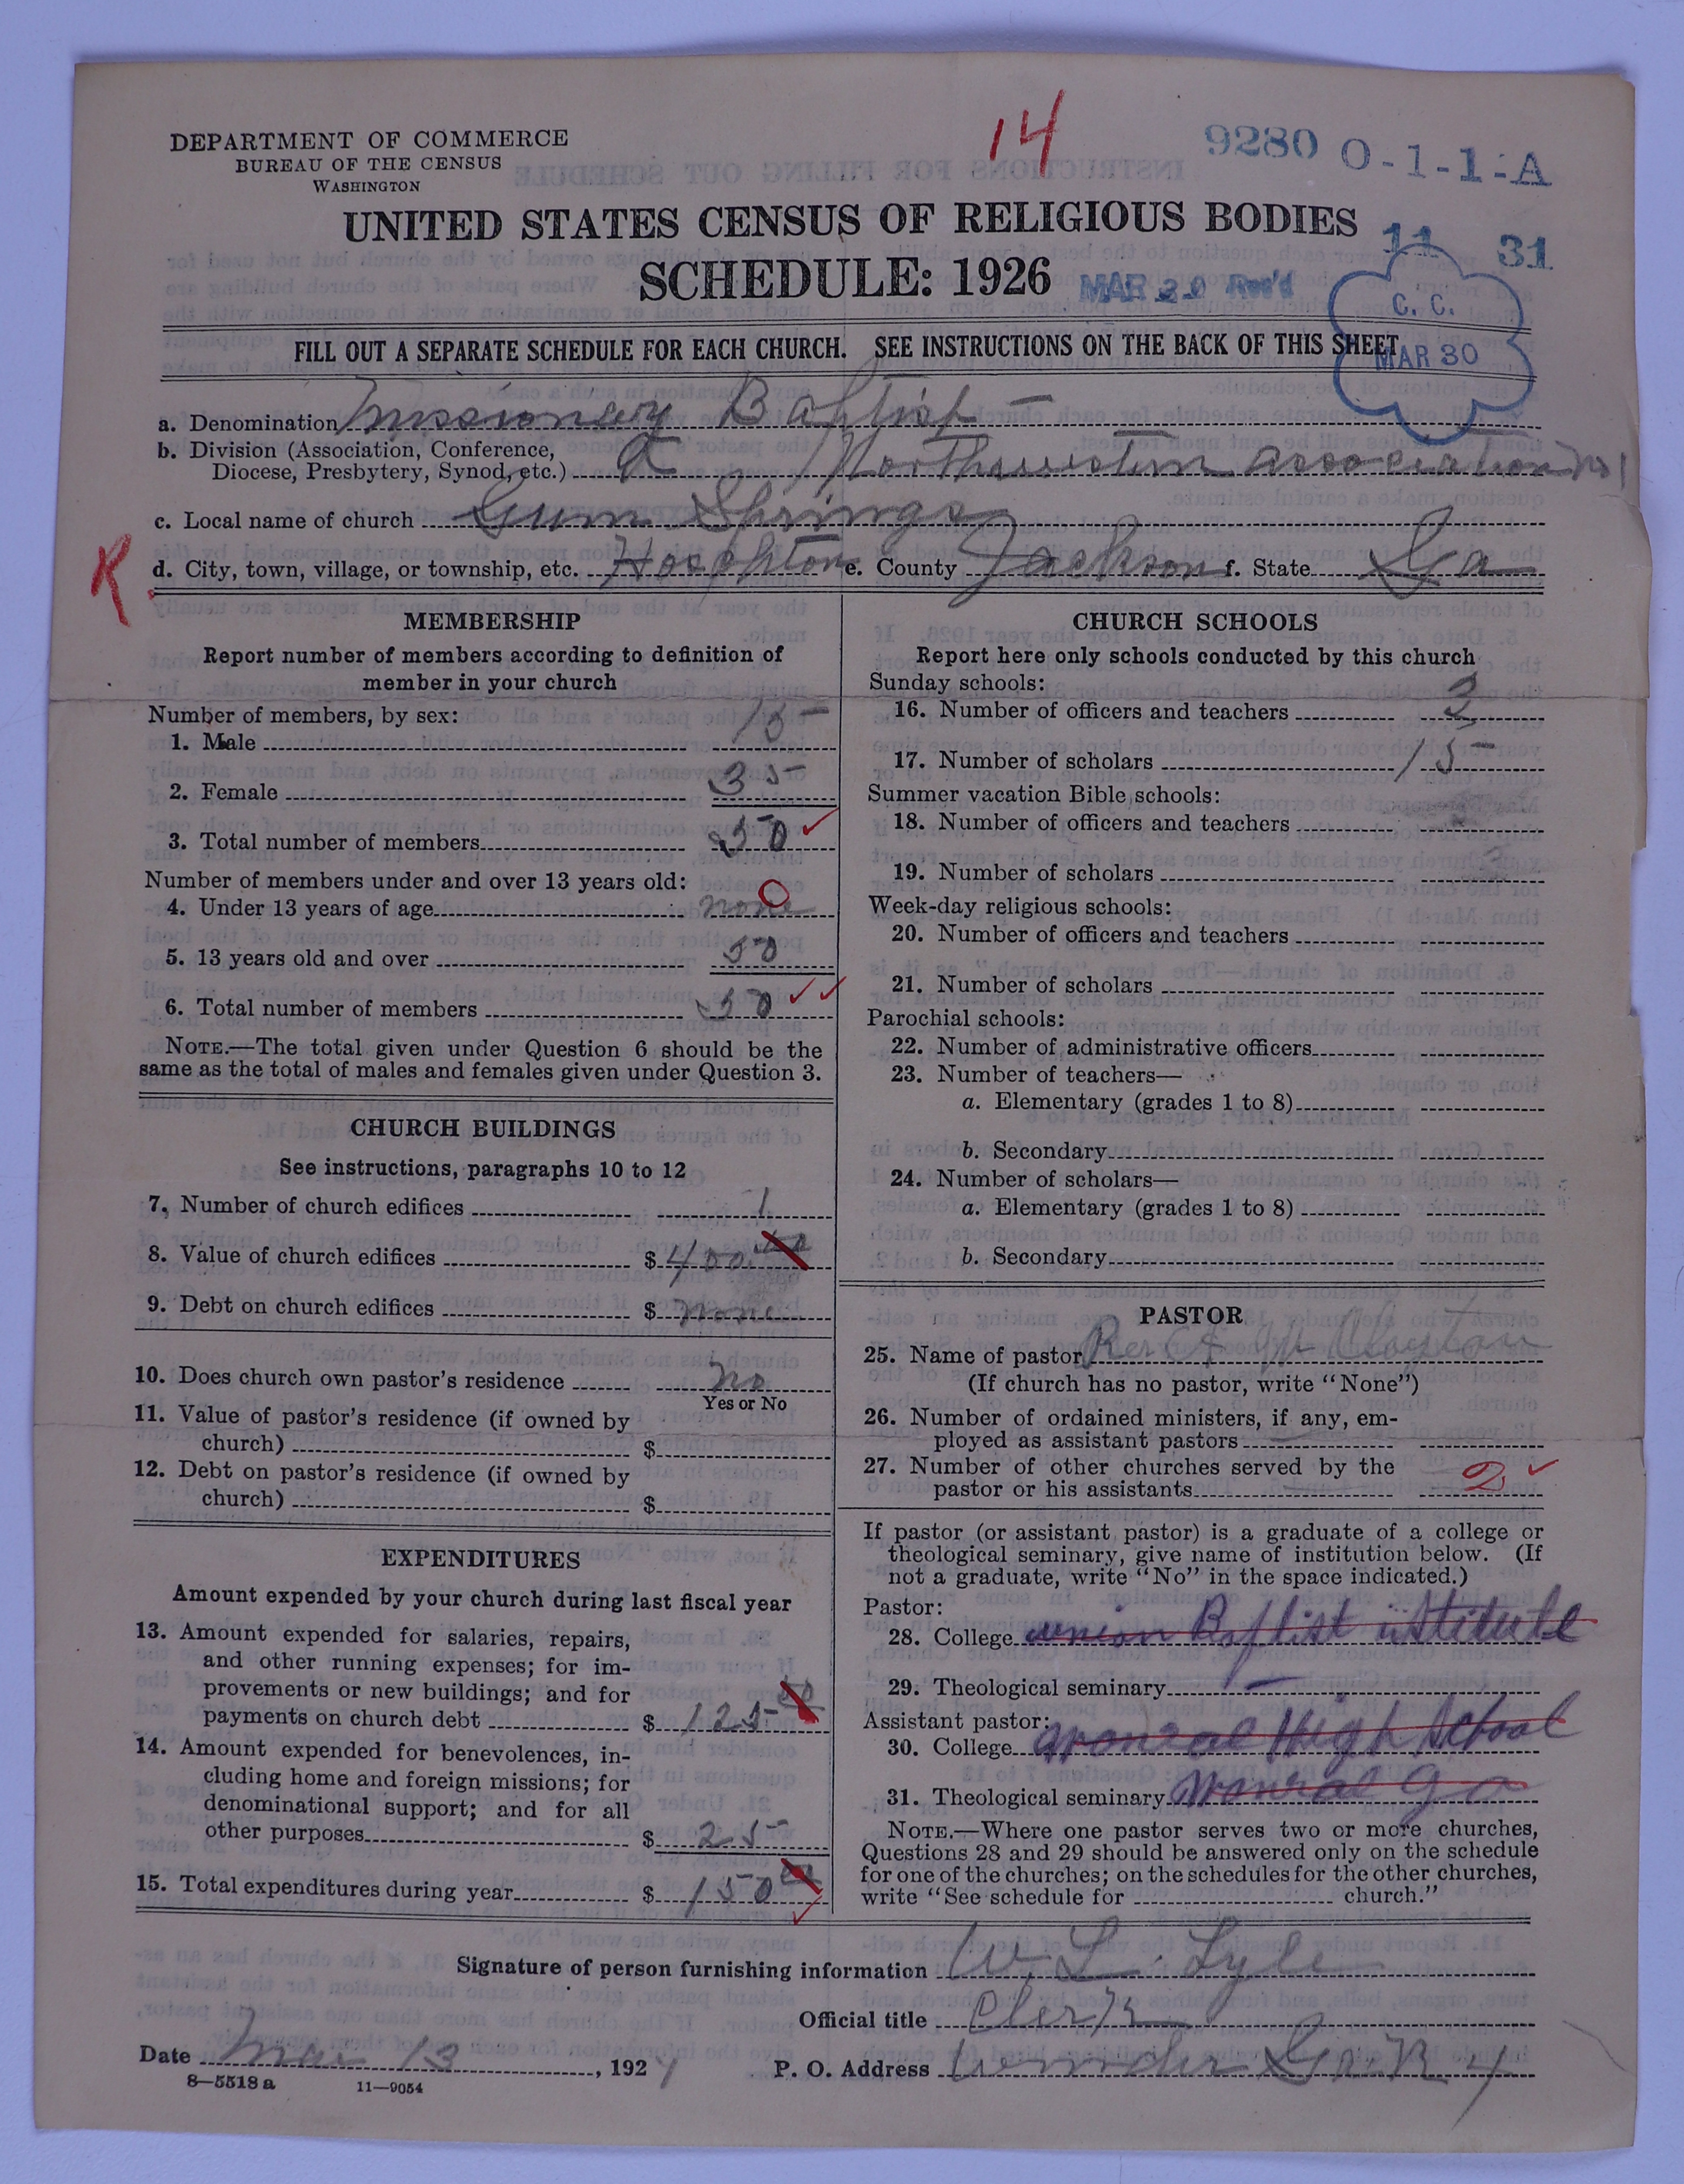 14
9280 O-1-1-A
DEPARTMENT OF COMMERCE
BUREAU OF THE CENSUS
WASHINGTON
UNITED STATES CENSUS OF RELIGIOUS BODIES
11 31
SCHEDULE: 1926
MAR 30 Rec'd
C. C.
MAR 30
FILL OUT A SEPARATE SCHEDULE FOR EACH CHURCH. SEE INSTRUCTIONS ON THE BACK OF THIS SHEET
a. Denomination Missionary Baptist
b. Division (Association, Conference,
Diocese, Presbytery, Synod, etc.) Northwestern association no 1
c. Local name of church Gum Springs
R
d. City, town, village, or township, etc. Hoschton e. County Jackson f. State Ga
MEMBERSHIP
Report number of members according to definition of
member in your church
Number of members, by sex:
1. Male 15
2. Female 35
3. Total number of members 50
Number of members under and over 13 years old:
4. Under 13 years of age none 0
5. 13 years old and over 50
6. Total number of members 50
NOTE.—The total given under Question 6 should be the
same as the total of males and females given under Question 3.
CHURCH BUILDINGS
See instructions, paragraphs 10 to 12
7. Number of church edifices 1
8. Value of church edifices $ 400.00
9. Debt on church edifices $ none
10. Does church own pastor's residence no
Yes or No
11. Value of pastor's residence (if owned by
church) $
12. Debt on pastor's residence (if owned by
church) $
EXPENDITURES
Amount expended by your church during last fiscal year
13. Amount expended for salaries, repairs,
and other running expenses; for im-
provements or new buildings; and for
payments on church debt $ 125 00
14. Amount expended for benevolences, in-
cluding home and foreign missions; for
denominational support; and for all
other purposes $ 25
15. Total expenditures during year $ 150 00
CHURCH SCHOOLS
Report here only schools conducted by this church
Sunday schools:
16. Number of officers and teachers 2
17. Number of scholars 15
Summer vacation Bible schools:
18. Number of officers and teachers
19. Number of scholars
Week-day religious schools:
20. Number of officers and teachers
21. Number of scholars
Parochial schools:
22. Number of administrative officers
23. Number of teachers—
a. Elementary (grades 1 to 8)
b. Secondary
24. Number of scholars—
a. Elementary (grades 1 to 8)
b. Secondary
PASTOR
25. Name of pastor Rev A M Clayton
(If church has no pastor, write "None")
26. Number of ordained ministers, if any, em-
ployed as assistant pastors
27. Number of other churches served by the
pastor or his assistants 2
If pastor (or assistant pastor) is a graduate of a college or
theological seminary, give name of institution below. (If
not a graduate, write "No" in the space indicated.)
Pastor:
28. College union Baptist istitute
29. Theological seminary
Assistant pastor:
30. College monroe High School
31. Theological seminary Monroe Ga
NOTE.—Where one pastor serves two or more churches,
Questions 28 and 29 should be answered only on the schedule
for one of the churches; on the schedules for the other churches,
write "See schedule for church."
Signature of person furnishing information W. L. Lyle
Official title Clerk
Date Mar 13, 1927 P. O. Address Winder Ga. R 4
8—5518 a 11—9054